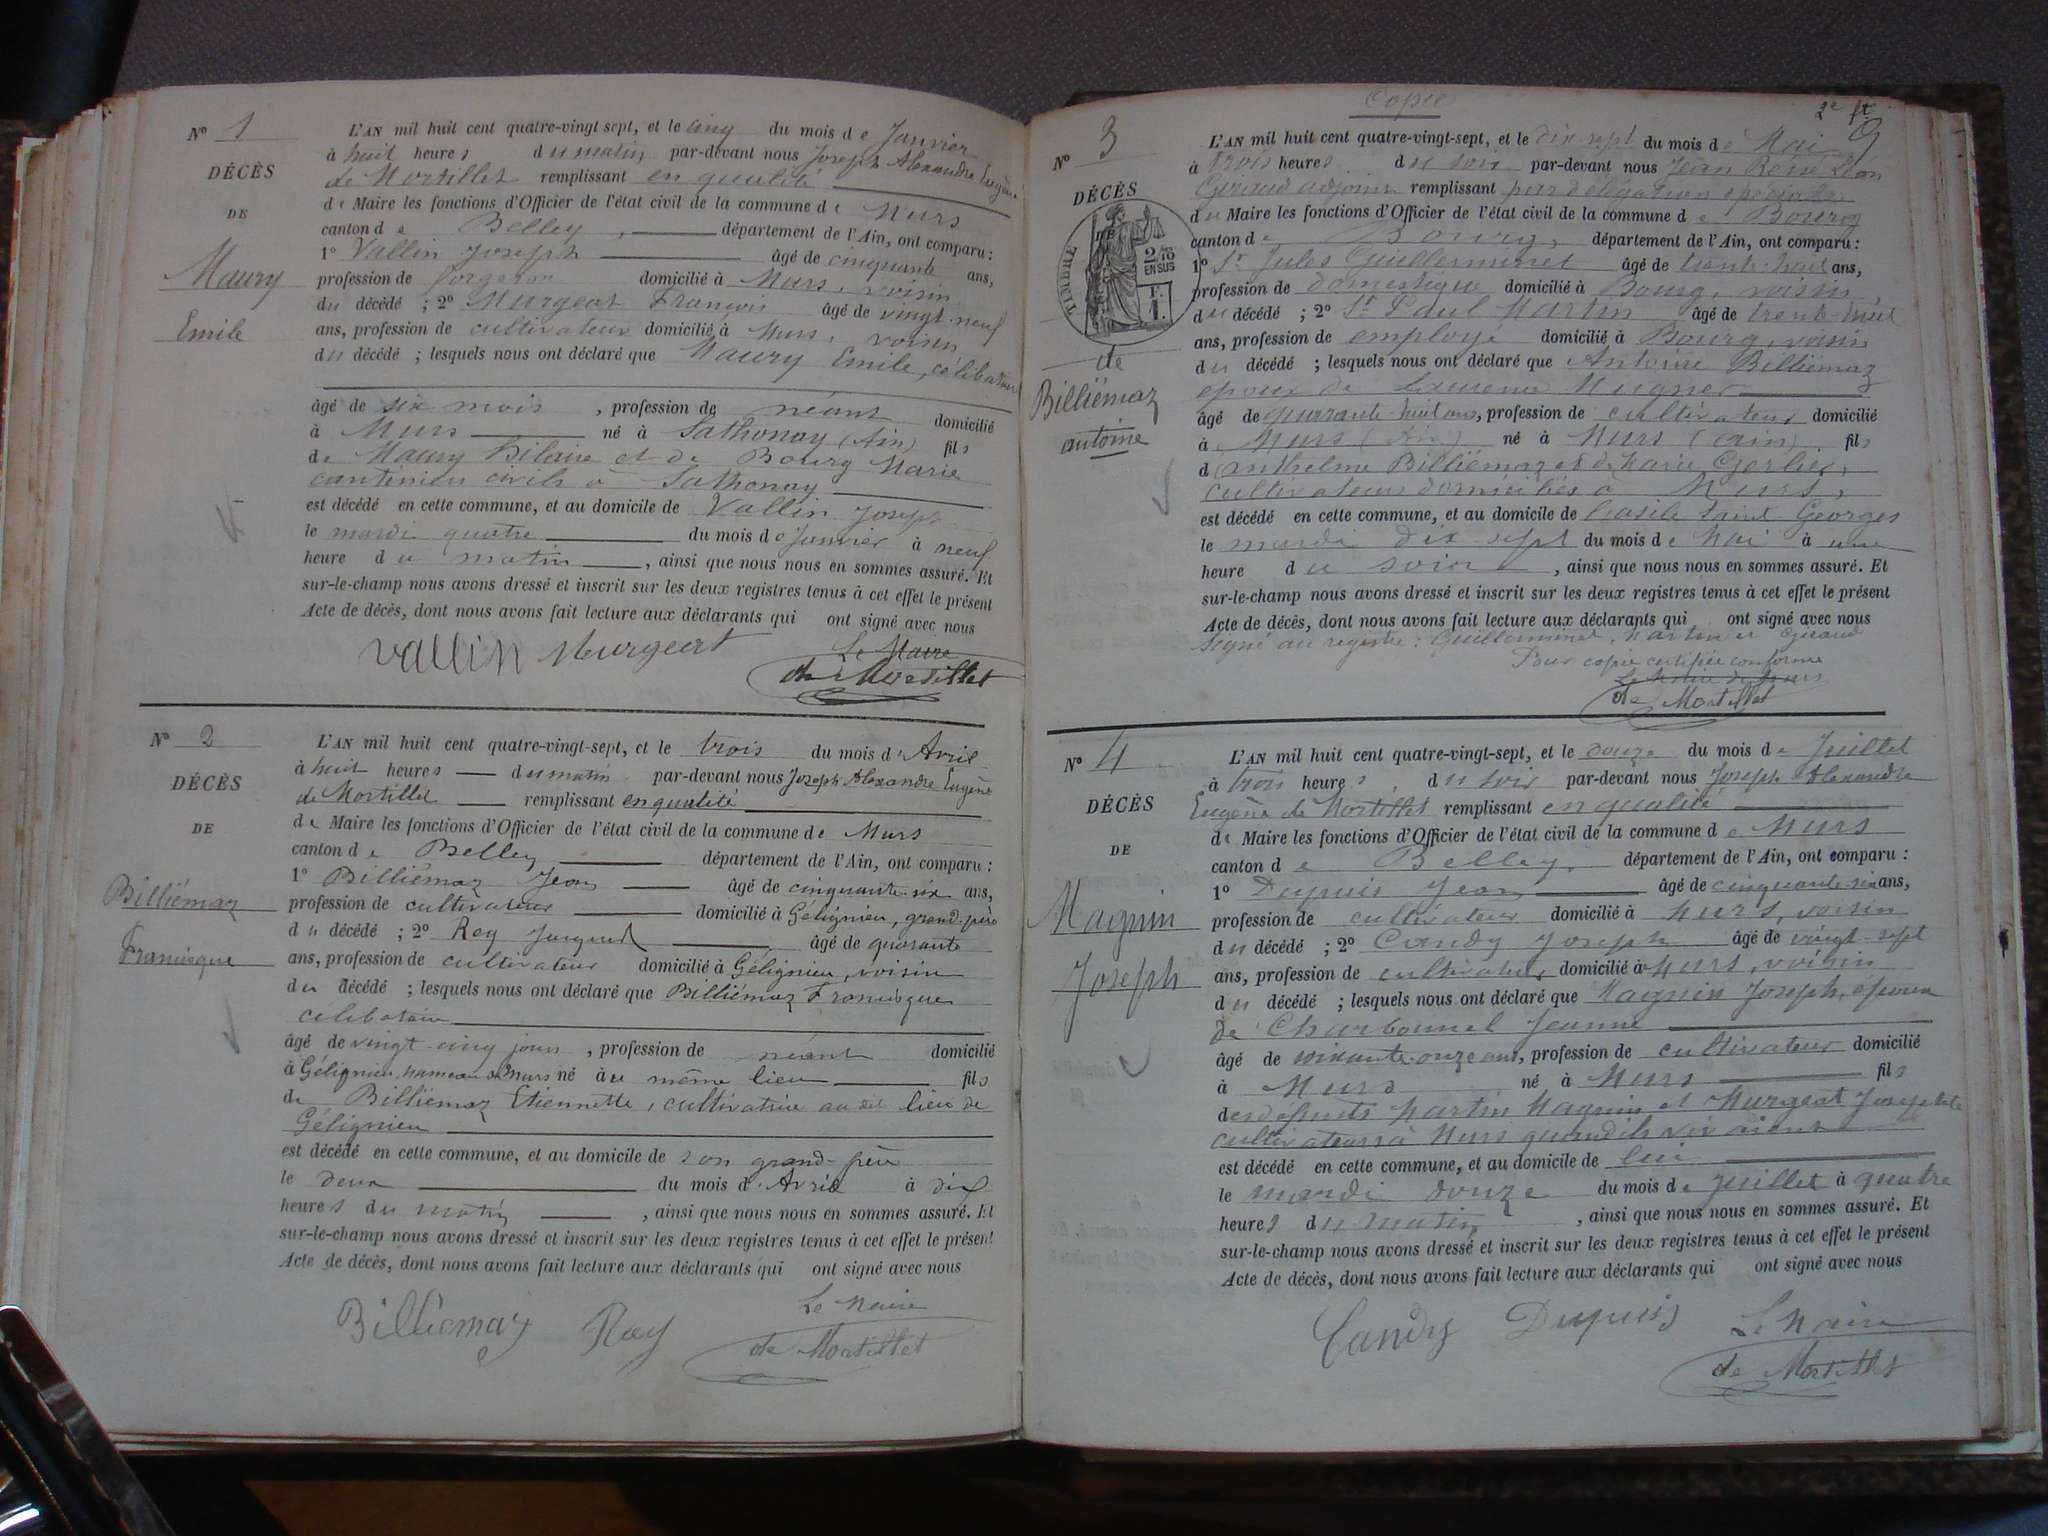 N° 1
DÉCÈS
DE
Maury
Emile
L'AN mil huit cent quatre-vingt sept, et le cinq du mois de Janvier
à huit heures du matin par-devant nous Joseph Alexandre Eugène
de Mortillet remplissant en qualité
de Maire les fonctions d'Officier de l'état civil de la commune de Murs
canton de Belley, département de l'Ain, ont comparu :
1° Vallin Joseph âgé de cinquante ans,
profession de forgeron domicilié à Murs, voisin
du décédé ; 2° Murgeat François âgé de vingt-neuf
ans, profession de cultivateur domicilié à Murs, voisin
du décédé ; lesquels nous ont déclaré que Maury Emile, célibataire
âgé de six mois, profession de néant domicilié
à Murs né à Sathonay (Ain) fils
de Maury Hilaire et de Bourg Marie
cantiniers civils à Sathonay
est décédé en cette commune, et au domicile de Vallin Joseph
le mardi quatre du mois de Janvier à neuf
heure du matin, ainsi que nous nous en sommes assuré. Et
sur-le-champ nous avons dressé et inscrit sur les deux registres tenus à cet effet le présent
Acte de décès, dont nous avons fait lecture aux déclarants qui ont signé avec nous
Vallin Murgeat Le Maire
de Mortillet
N° 2
DÉCÈS
DE
Billiémaz
Francisque
L'AN mil huit cent quatre-vingt-sept, et le trois du mois d'Avril
à huit heures du matin par-devant nous Joseph Alexandre Eugène
de Mortillet remplissant en qualité
de Maire les fonctions d'Officier de l'état civil de la commune de Murs
canton de Belley, département de l'Ain, ont comparu :
1° Billiémaz Jean âgé de cinquante-six ans,
profession de cultivateur domicilié à Gélignieu, grand-père
du décédé ; 2° Rey âgé de quarante
ans, profession de cultivateur domicilié à Gélignieu, voisin
du décédé ; lesquels nous ont déclaré que Billiémaz Francisque
célibataire
âgé de vingt-cinq jours, profession de néant domicilié
à Gélignieu, hameau de Murs né au même lieu fils
de Billiémaz Etiennette, cultivatrice au dit lieu de
Gélignieu
est décédé en cette commune, et au domicile de son grand-père
le deux du mois d'Avril à dix
heures du matin, ainsi que nous nous en sommes assuré. Et
sur-le-champ nous avons dressé et inscrit sur les deux registres tenus à cet effet le présent
Acte de décès, dont nous avons fait lecture aux déclarants qui ont signé avec nous
Billiemaz Rey Le Maire
de Mortillet
Copie
2e ft
9
N° 3
DÉCÈS
DE
TIMBRE
2/10
EN SUS
F.
1.
de
Billiémaz
antoine
L'AN mil huit cent quatre-vingt-sept, et le dix sept du mois de Mai
à trois heures du soir par-devant nous Jean René Léon
Giraud adjoint remplissant par délégation spéciale
du Maire les fonctions d'Officier de l'état civil de la commune de Bourg
canton de Bourg, département de l'Ain, ont comparu :
1° Sr Jules Guillerminet âgé de trente-huit ans,
profession de domestique domicilié à Bourg, voisin
du décédé ; 2° Sr Paul Martin âgé de trente-huit
ans, profession de employé domicilié à Bourg, voisin
du décédé ; lesquels nous ont déclaré que Antoine Billiémaz
époux de Mugner
âgé de quarante-huit ans, profession de cultivateur domicilié
à Murs (Ain) né à Murs (Ain) fils
d'Anthelme Billiémaz et de Marie Gerlier,
cultivateurs domiciliés à Murs,
est décédé en cette commune, et au domicile de l'asile Saint Georges
le mardi dix-sept du mois de Mai à une
heure du soir, ainsi que nous nous en sommes assuré. Et
sur-le-champ nous avons dressé et inscrit sur les deux registres tenus à cet effet le présent
Acte de décès, dont nous avons fait lecture aux déclarants qui ont signé avec nous
Signé au registre : Guillerminet, Martin et Giraud
Pour copie certifiée conforme
Le Maire de Murs
de Mortillet
N° 4
DÉCÈS
DE
Magnin
Joseph
L'AN mil huit cent quatre-vingt-sept, et le douze du mois de Juillet
à trois heures du soir par-devant nous Joseph Alexandre
Eugène de Mortillet remplissant en qualité
de Maire les fonctions d'Officier de l'état civil de la commune de Murs
canton de Belley, département de l'Ain, ont comparu :
1° Dupuis Jean âgé de cinquante-six ans,
profession de cultivateur domicilié à Murs, voisin
du décédé ; 2° Candy Joseph âgé de vingt-sept
ans, profession de cultivateur domicilié à Murs, voisin
du décédé ; lesquels nous ont déclaré que Magnin Joseph, époux
de Charbonnel Jeanne
âgé de soixante-onze ans, profession de cultivateur domicilié
à Murs né à Murs fils
des défunts Martin Magnin et Murgeat Josephte
cultivateurs à Murs quand ils vivaient
est décédé en cette commune, et au domicile de lui
le mardi douze du mois de Juillet à quatre
heures du matin, ainsi que nous nous en sommes assuré. Et
sur-le-champ nous avons dressé et inscrit sur les deux registres tenus à cet effet le présent
Acte de décès, dont nous avons fait lecture aux déclarants qui ont signé avec nous
Candy Dupuis Le Maire
de Mortillet